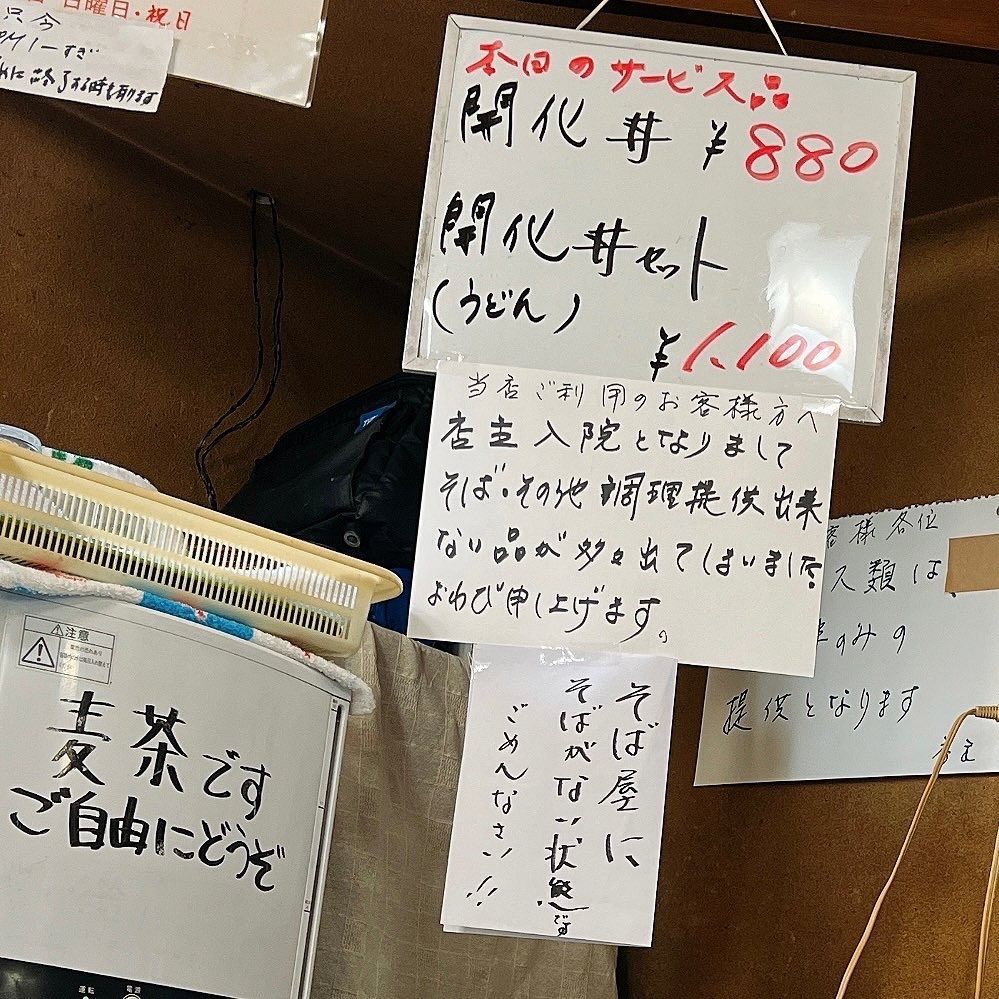 日曜日・祝日
只今
に終了する時も有ります
本日のサービス品
開化丼 ¥880
開化丼セット
(うどん)
¥1,100
当店ご利用のお客様方へ
店主入院となりまして
そば・その他調理提供出来
ない品が多々出てしまいました。
おわび申し上げます。
そば屋に
そばがない状態です
ごめんなさい!!
客様各位
類は
のみの
提供となります
店主
注意
麦茶です
ご自由にどうぞ
運転
電源